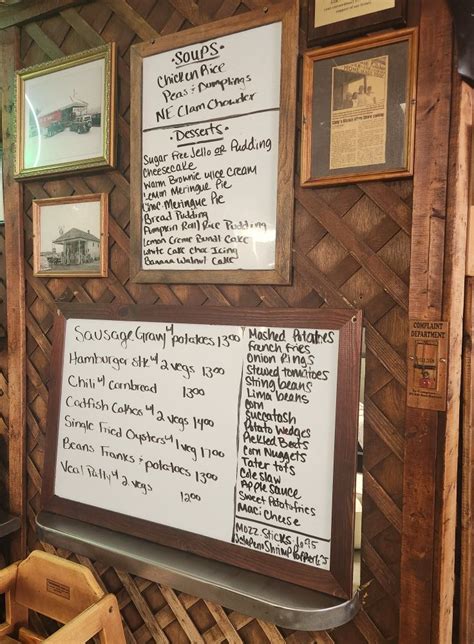 Soups
Chicken Rice
Peas & Dumplings
NE Clam Chowder
Desserts
Sugar Free Jello or Pudding
Cheesecake
Warm Brownie w/ice cream
Lemon Meringue Pie
Lime Meringue Pie
Bread Pudding
Rice Pudding
Lemon Creme Bundt Cake
White Choc Icing
Banana Walnut Cake
Sausage Gravy 4 potatoes 1300
Hamburger stk 4 2 vegs 1300
Chili 4 Cornbread 1300
Codfish Cakes 4 2 vegs 1400
Single Fried Oysters 4 1 veg 1700
Beans Franks & potatoes 1300
Veal Patty 4 2 vegs 1200
Mashed Potatoes
French fries
Onion Rings
Stewed tomatoes
String beans
Lima beans
Corn
Succatash
Potato Wedges
Pickled Beets
Corn Nuggets
Tater tots
Cole slaw
Apple sauce
Sweet Potato fries
Mac i Cheese
Mozz. Sticks
Jalapeno Shrimp Poppers
COMPLAINT
DEPARTMENT